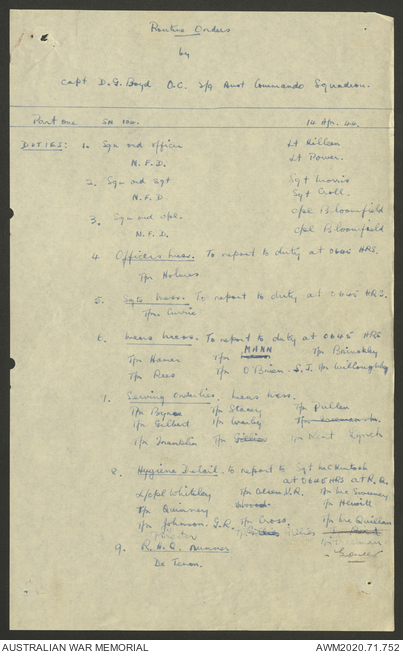 Routine Orders
by
Capt D. G. Boyd O.C. 2/9 Aust Commando Squadron.
Part One SN 104. 14 Apr. 44.
DUTIES: 1. Sqn ord officer Lt Killen
N.F.D. Lt Power.
2. Sqn ord sgt Sgt Morris
N.F.D. Sgt Croll.
3. Sqn ord cpl. Cpl Bloomfield
N.F.D. Cpl Bloomfield
4. Officers mess. To report to duty at 0645 HRS.
Tpr Holmes
5. Sgts mess. To report to duty at 0645 HRS.
Tpr Currie
6. Mens mess. To report to duty at 0645 HRS
MANN
Tpr Tpr Tpr Brinkley
Tpr Rees Tpr O'Brien. S.J. Tpr Willoughby
7. Serving Orderlies, mens mess.
Tpr Byrne Tpr Stacey Tpr Pullen
Tpr Gilbert Tpr Tpr
Tpr Franklin Tpr Tpr Kent Lynch
8. Hygiene Detail. To report to Sgt McKintosh
at 0645 HRS at R.Q.
L/Cpl Whiteley Tpr Olsen V.R. Tpr McSweeney
Tpr Quinney Wood Tpr Hewitt
Tpr Johnson. G.R. Tpr Cross. Tpr McQuillan
Tpr
9. R.H.Q. Runner
De Teran.
AUSTRALIAN WAR MEMORIAL AWM2020.71.752